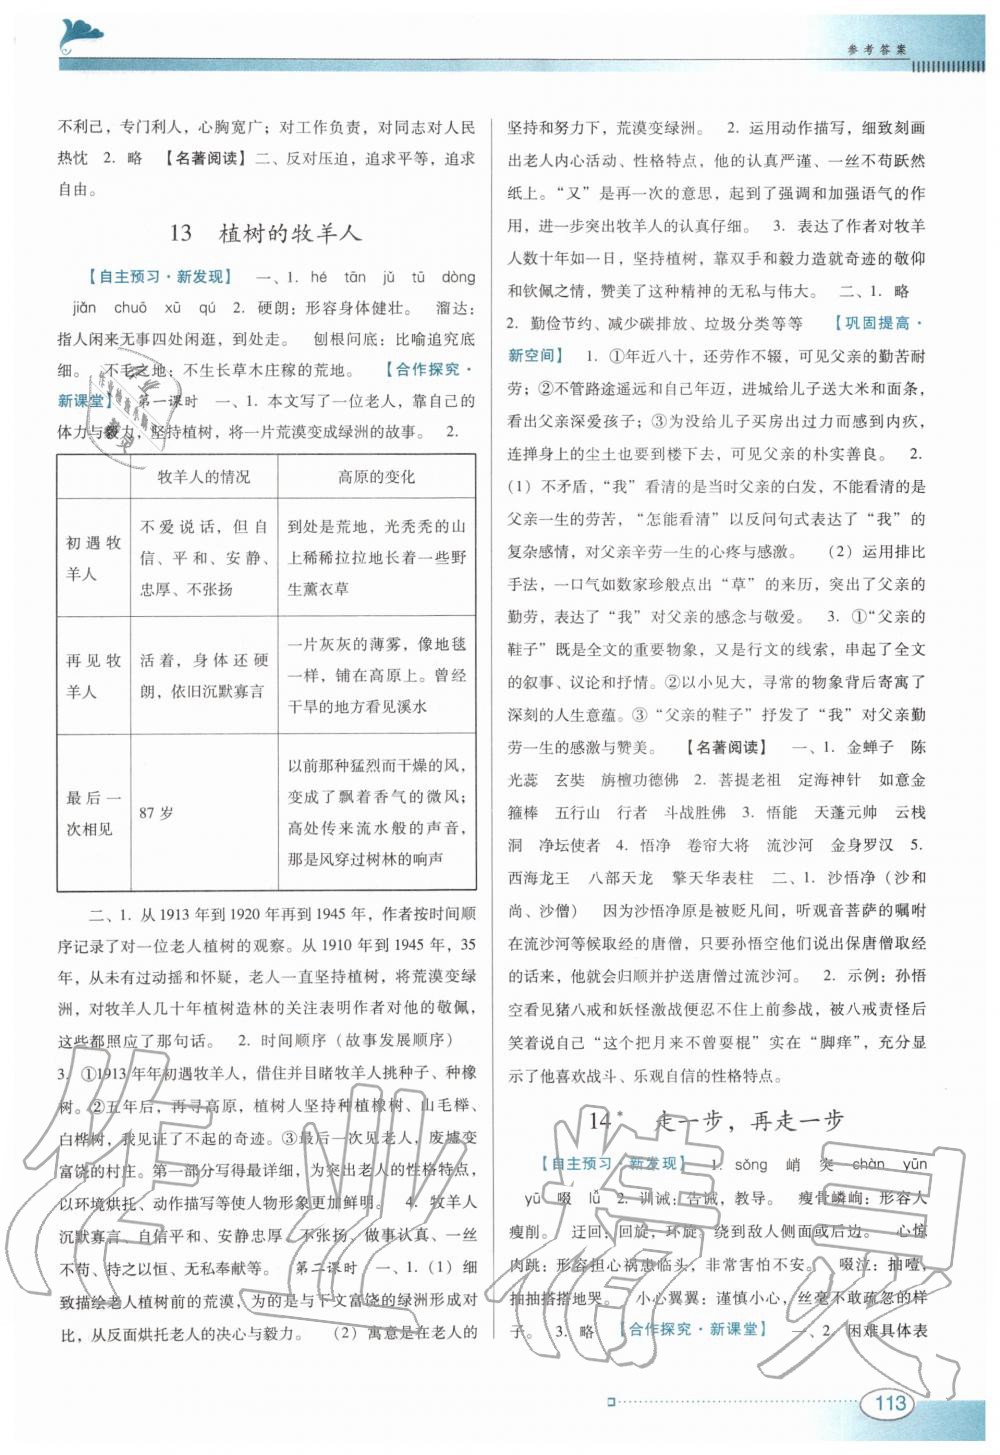 参考答案
不利己，专门利人，心胸宽广；对工作负责，对同志对人民
热忱　2. 略　【名著阅读】二、反对压迫，追求平等，追求
自由。
13　植树的牧羊人
【自主预习·新发现】　一、1. hé　tān　jǔ　tū　dòng
jiǎn　chuō　xū　qú　2. 硬朗：形容身体健壮。　溜达：
指人闲来无事四处闲逛，到处走。　刨根问底：比喻追究底
细。　不毛之地：不生长草木庄稼的荒地。　【合作探究·
新课堂】　第一课时　一、1. 本文写了一位老人，靠自己的
体力与毅力，坚持植树，将一片荒漠变成绿洲的故事。　2.
牧羊人的情况　高原的变化
初遇牧
羊人
不爱说话，但自
信、平和、安静、
忠厚、不张扬
到处是荒地，光秃秃的山
上稀稀拉拉地长着一些野
生薰衣草
再见牧
羊人
活着，身体还硬
朗，依旧沉默寡言
一片灰灰的薄雾，像地毯
一样，铺在高原上。曾经
干旱的地方看见溪水
最后一
次相见
87 岁
以前那种猛烈而干燥的风，
变成了飘着香气的微风；
高处传来流水般的声音，
那是风穿过树林的响声
二、1. 从 1913 年到 1920 年再到 1945 年，作者按时间顺
序记录了对一位老人植树的观察。从 1910 年到 1945 年，35
年，从未有过动摇和怀疑，老人一直坚持植树，将荒漠变绿
洲，对牧羊人几十年植树造林的关注表明作者对他的敬佩，
这些都照应了那句话。　2. 时间顺序（故事发展顺序）
3. ①1913 年年初遇牧羊人，借住并目睹牧羊人挑种子、种橡
树。②五年后，再寻高原，植树人坚持种植橡树、山毛榉、
白桦树，我见证了不起的奇迹。③最后一次见老人，废墟变
富饶的村庄。第一部分写得最详细，为突出老人的性格特点，
以环境烘托、动作描写等使人物形象更加鲜明。　4. 牧羊人
沉默寡言、自信平和、安静忠厚、不张扬、做事认真、一丝
不苟、持之以恒、无私奉献等。　第二课时　一、1.（1）细
致描绘老人植树前的荒漠，为的是与下文富饶的绿洲形成对
比，从反面烘托老人的决心与毅力。　（2）寓意是在老人的
坚持和努力下，荒漠变绿洲。　2. 运用动作描写，细致刻画
出老人内心活动、性格特点，他的认真严谨、一丝不苟跃然
纸上。“又”是再一次的意思，起到了强调和加强语气的作
用，进一步突出牧羊人的认真仔细。　3. 表达了作者对牧羊
人数十年如一日，坚持植树，靠双手和毅力造就奇迹的敬仰
和钦佩之情，赞美了这种精神的无私与伟大。　二、1. 略
2. 勤俭节约、减少碳排放、垃圾分类等等　【巩固提高·
新空间】　1. ①年近八十，还劳作不辍，可见父亲的勤苦耐
劳；②不管路途遥远和自己年迈，进城给儿子送大米和面条，
看出父亲深爱孩子；③为没给儿子买房出过力而感到内疚，
连掸身上的尘土也要到楼下去，可见父亲的朴实善良。　2.
（1）不矛盾，“我”看清的是当时父亲的白发，不能看清的是
父亲一生的劳苦，“怎能看清”以反问句式表达了“我”的
复杂感情，对父亲辛劳一生的心疼与感激。　（2）运用排比
手法，一口气如数家珍般点出“草”的来历，突出了父亲的
勤劳，表达了“我”对父亲的感念与敬爱。　3. ①“父亲的
鞋子”既是全文的重要物象，又是行文的线索，串起了全文
的叙事、议论和抒情。②以小见大，寻常的物象背后寄寓了
深刻的人生意蕴。③“父亲的鞋子”抒发了“我”对父亲勤
劳一生的感激与赞美。　【名著阅读】　一、1. 金蝉子　陈
光蕊　玄奘　旃檀功德佛　2. 菩提老祖　定海神针　如意金
箍棒　五行山　行者　斗战胜佛　3. 悟能　天蓬元帅　云栈
洞　净坛使者　4. 悟净　卷帘大将　流沙河　金身罗汉　5.
西海龙王　八部天龙　擎天华表柱　二、1. 沙悟净（沙和
尚、沙僧）　因为沙悟净原是被贬凡间，听观音菩萨的嘱咐
在流沙河等候取经的唐僧，只要孙悟空他们说出保唐僧取经
的话来，他就会归顺并护送唐僧过流沙河。　2. 示例：孙悟
空看见猪八戒和妖怪激战便忍不住上前参战，被八戒责怪后
笑着说自己“这个把月来不曾耍棍”实在“脚痒”，充分显
示了他喜欢战斗、乐观自信的性格特点。
14*　走一步，再走一步
【自主预习·新发现】　1. sǒng　峭　突　chàn　yūn
yū　啜　lǜ　2. 训诫：告诫，教导。　瘦骨嶙峋：形容人
瘦削。　迂回：回旋，环旋；绕到敌人侧面或后边。　心惊
肉跳：形容担心祸患临头，非常害怕不安。　啜泣：抽噎，
抽抽搭搭地哭。　小心翼翼：谨慎小心，丝毫不敢疏忽的样
子。　3. 略　【合作探究·新课堂】　一、2. 困难具体表
113
作业精灵